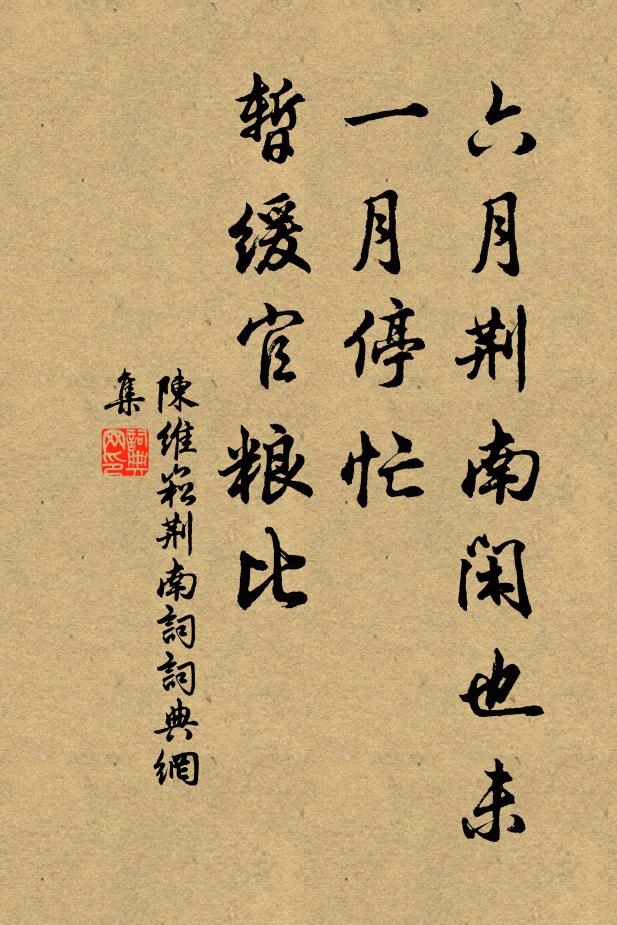 六月荆南閑也未
一月停忙
暫缓官粮比
陳維崧荆南詞詞典網
集
詞典网印